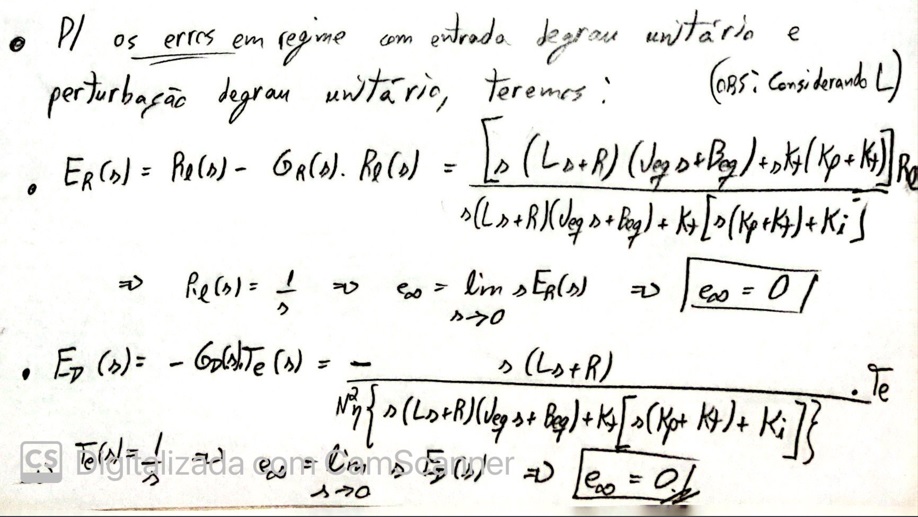 • P/ os erros em regime com entrada degrau unitário e
perturbação degrau unitário, teremos: (OBS: Considerando L)
• E_R(s) = Rl(s) - G_R(s). Rl(s) = [s (Ls+R) (Jeq s+Beq)+sKt(Kp+Kt)] Rl
s(Ls+R)(Jeq s+Beq) + Kt [s(Kp+Kt)+Ki]
⇒ Rl(s) = 1/s ⇒ e∞ = lim s E_R(s) ⇒ e∞ = 0
s→0
• E_D(s) = - G_D(s)Te(s) = - s (Ls+R) . Te
N²η{s(Ls+R)(Jeq s+Beq)+Kt[s(Kp+Kt)+Ki]}
Te(s)=1/s ⇒ e∞ = lim s E_D(s) ⇒ e∞ = 0
s→0
CS Digitalizada com CamScanner